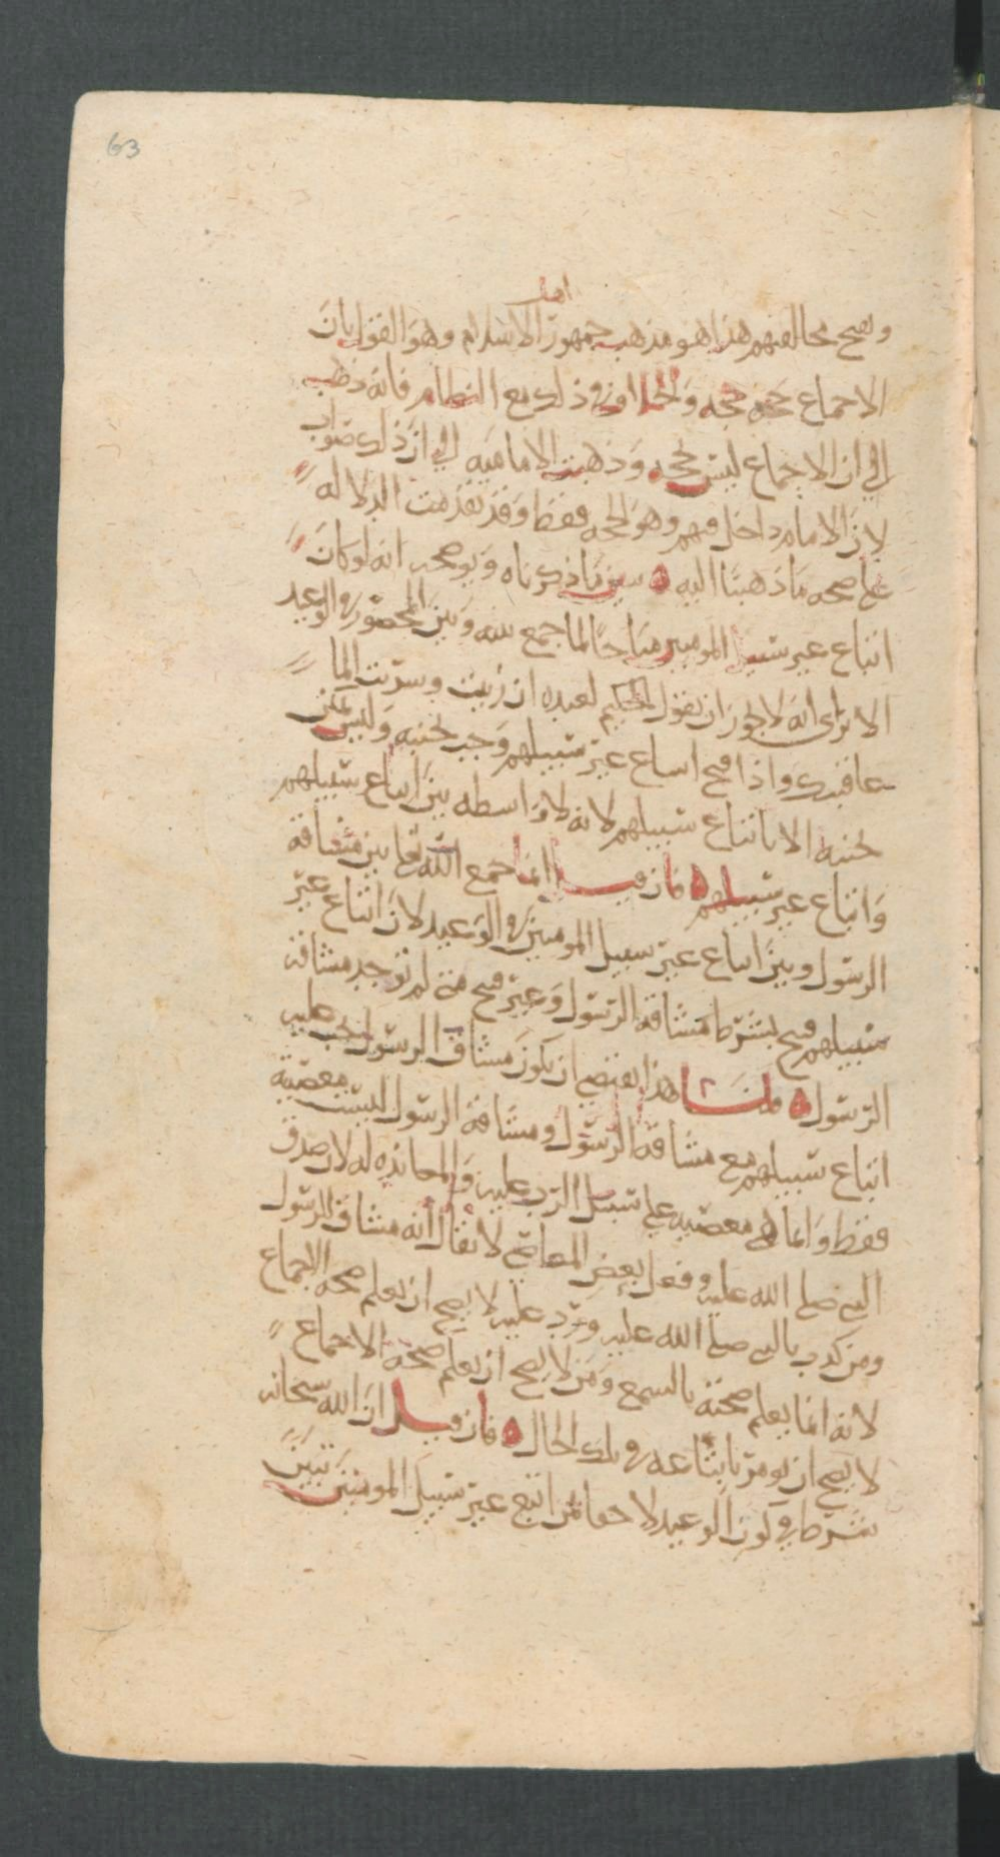 63
اهل
وصح مخالفتهم هذا هو مذهب جمهور الاسلام وهو القول بان
الاجماع حجه والخلاف في ذلك مع النظام فانه ذهب
الي ان الاجماع ليس بحجه وذهبت الاماميه الي ان ذلك صواب
لان الامام داخل فيهم وهو الحجه فقط وقد تقدمت الدلاله
على صحه ما ذهبنا اليه يبين ما ذكرناه ويوضحه انه لو كان
اتباع غير سبيل المومنين مباحا لما جمع بينه وبين المحضور في الوعيد
الا ترى انه لا يجوز ان يقول الحكيم لعبده ان زنيت وشربت الما
عاقبتك واذا قبح اتباع غير سبيلهم وجب تجنبه وليس يمكن
تجنبه الا باتباع سبيلهم لانه لا واسطه بين اتباع سبيلهم
واتباع غير سبيلهم فان قيل انما جمع الله تعا بين مشاقة
الرسول وبين اتباع غير سبيل المومنين في الوعيد لان اتباع غير
سبيلهم قبح بشرط مشاقة الرسول وغير قبح من لم توجد مشاقة
الرسول قلنا هذا يقتضي ان يكون مشاق الرسول يجب عليه
اتباع سبيلهم مع مشاقة الرسول ومشاقة الرسول ليست معصية
فقط وانما هي معصيه على سبيل الرد عليه والمعانده له لان من صدق
النبي صلى الله عليه وفعل بعض المعاصي لا يقال انه مشاق للرسول
ومن كذب بالنبي صلى الله عليه ورد عليه لا يصح ان يعلم صحه الاجماع
لانه انما يعلم صحته بالسمع ومن لا يصح ان يعلم صحة الاجماع
لا يصح ان يومر باتباعه في تلك الحال فان قيل ان الله سبحانه
شرط في كون الوعيد لاحقا بمن اتبع غير سبيل المومنين تبين